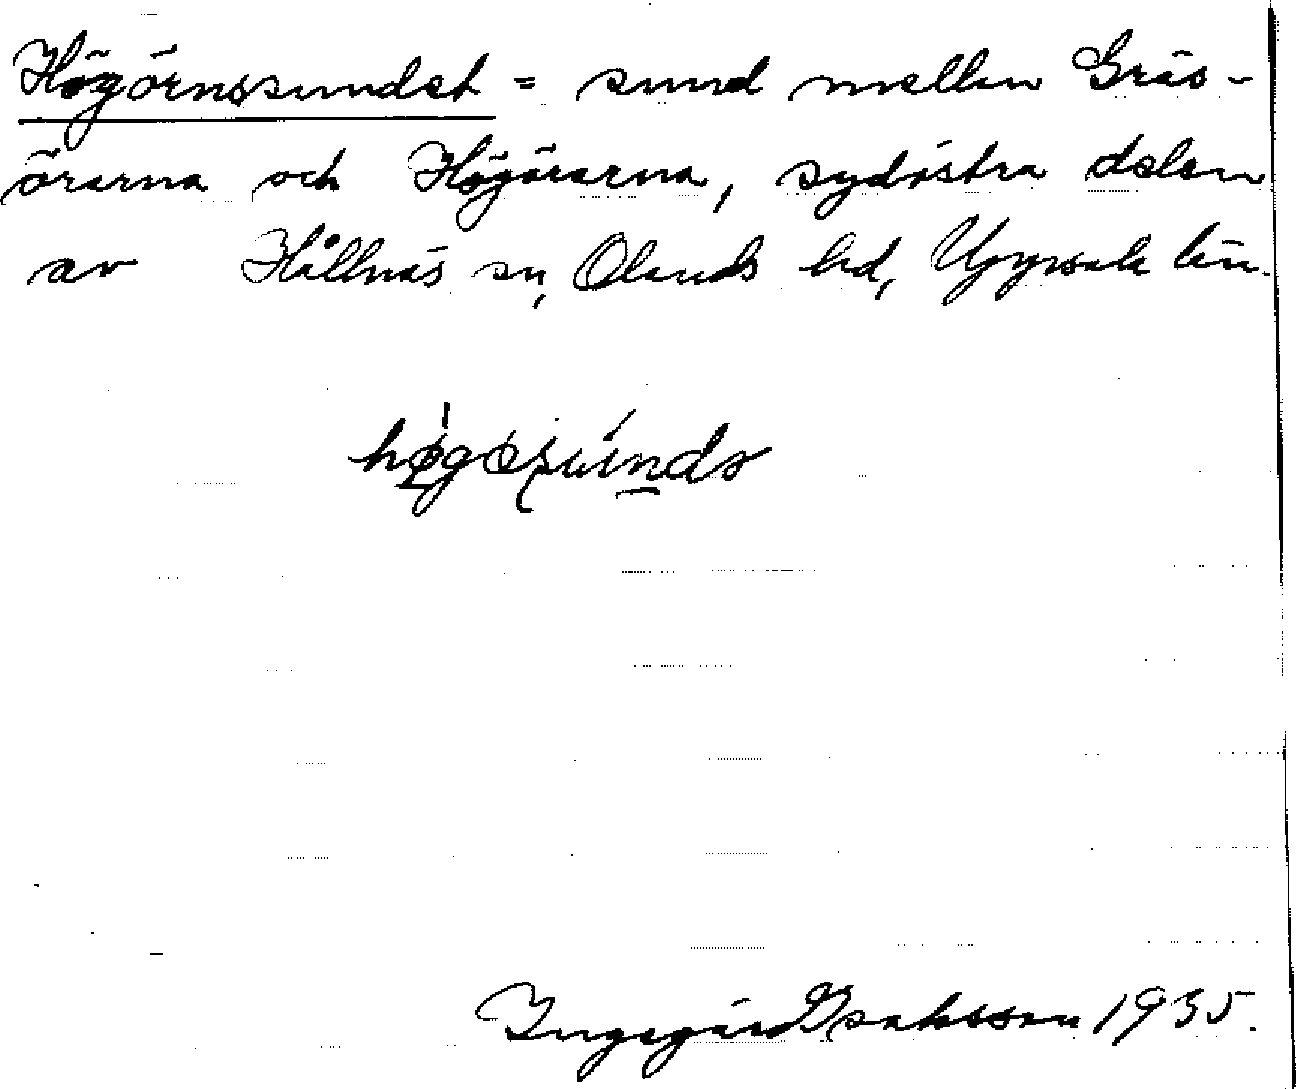 Högörnssundet = sund mellan Gräs-
örarna och Högörarna, sydöstra delen
av Hållnäs sn, Olands hd, Uppsala län.
Ingegärd Isaksson 1935.